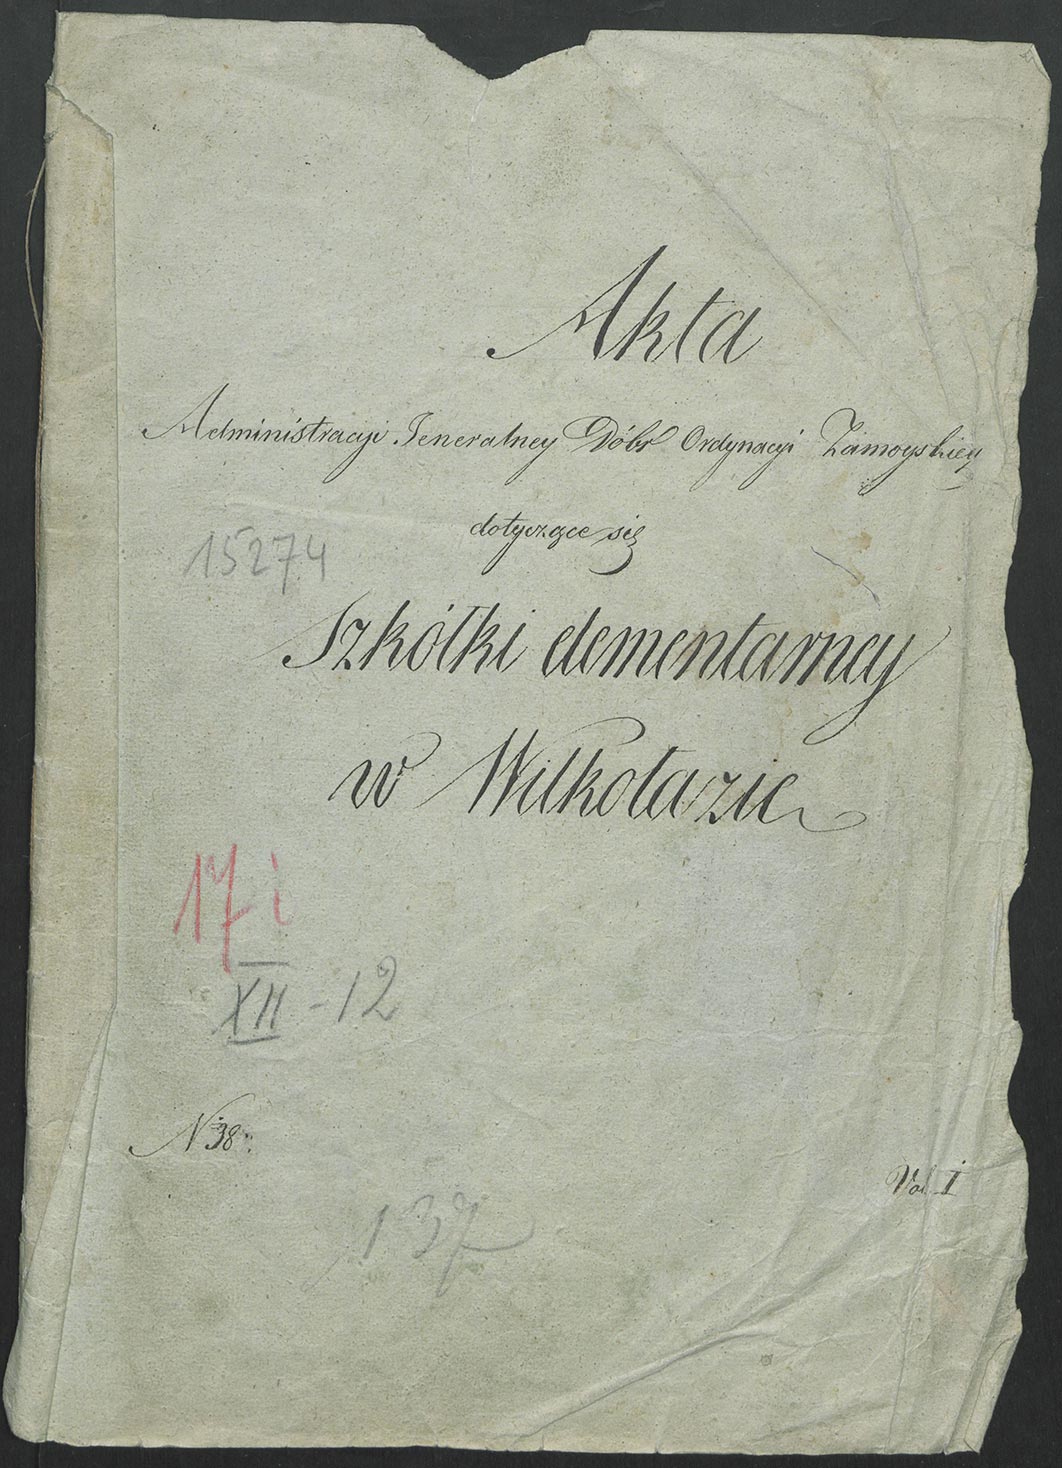 Akta
Administracyi Jeneralney Dóbr Ordynacyi Zamoyskiey
dotyczące się
15274
Szkółki elementarney
w Wilkołazie
17 i
XII - 12
N 38.
Vol. I
137